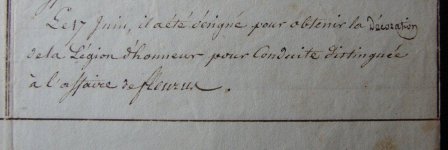 Le 17 Juin, il a été désigné pour obtenir la Décoration
de la Légion d'honneur pour Conduite distinguée
à l'affaire de fleurus.